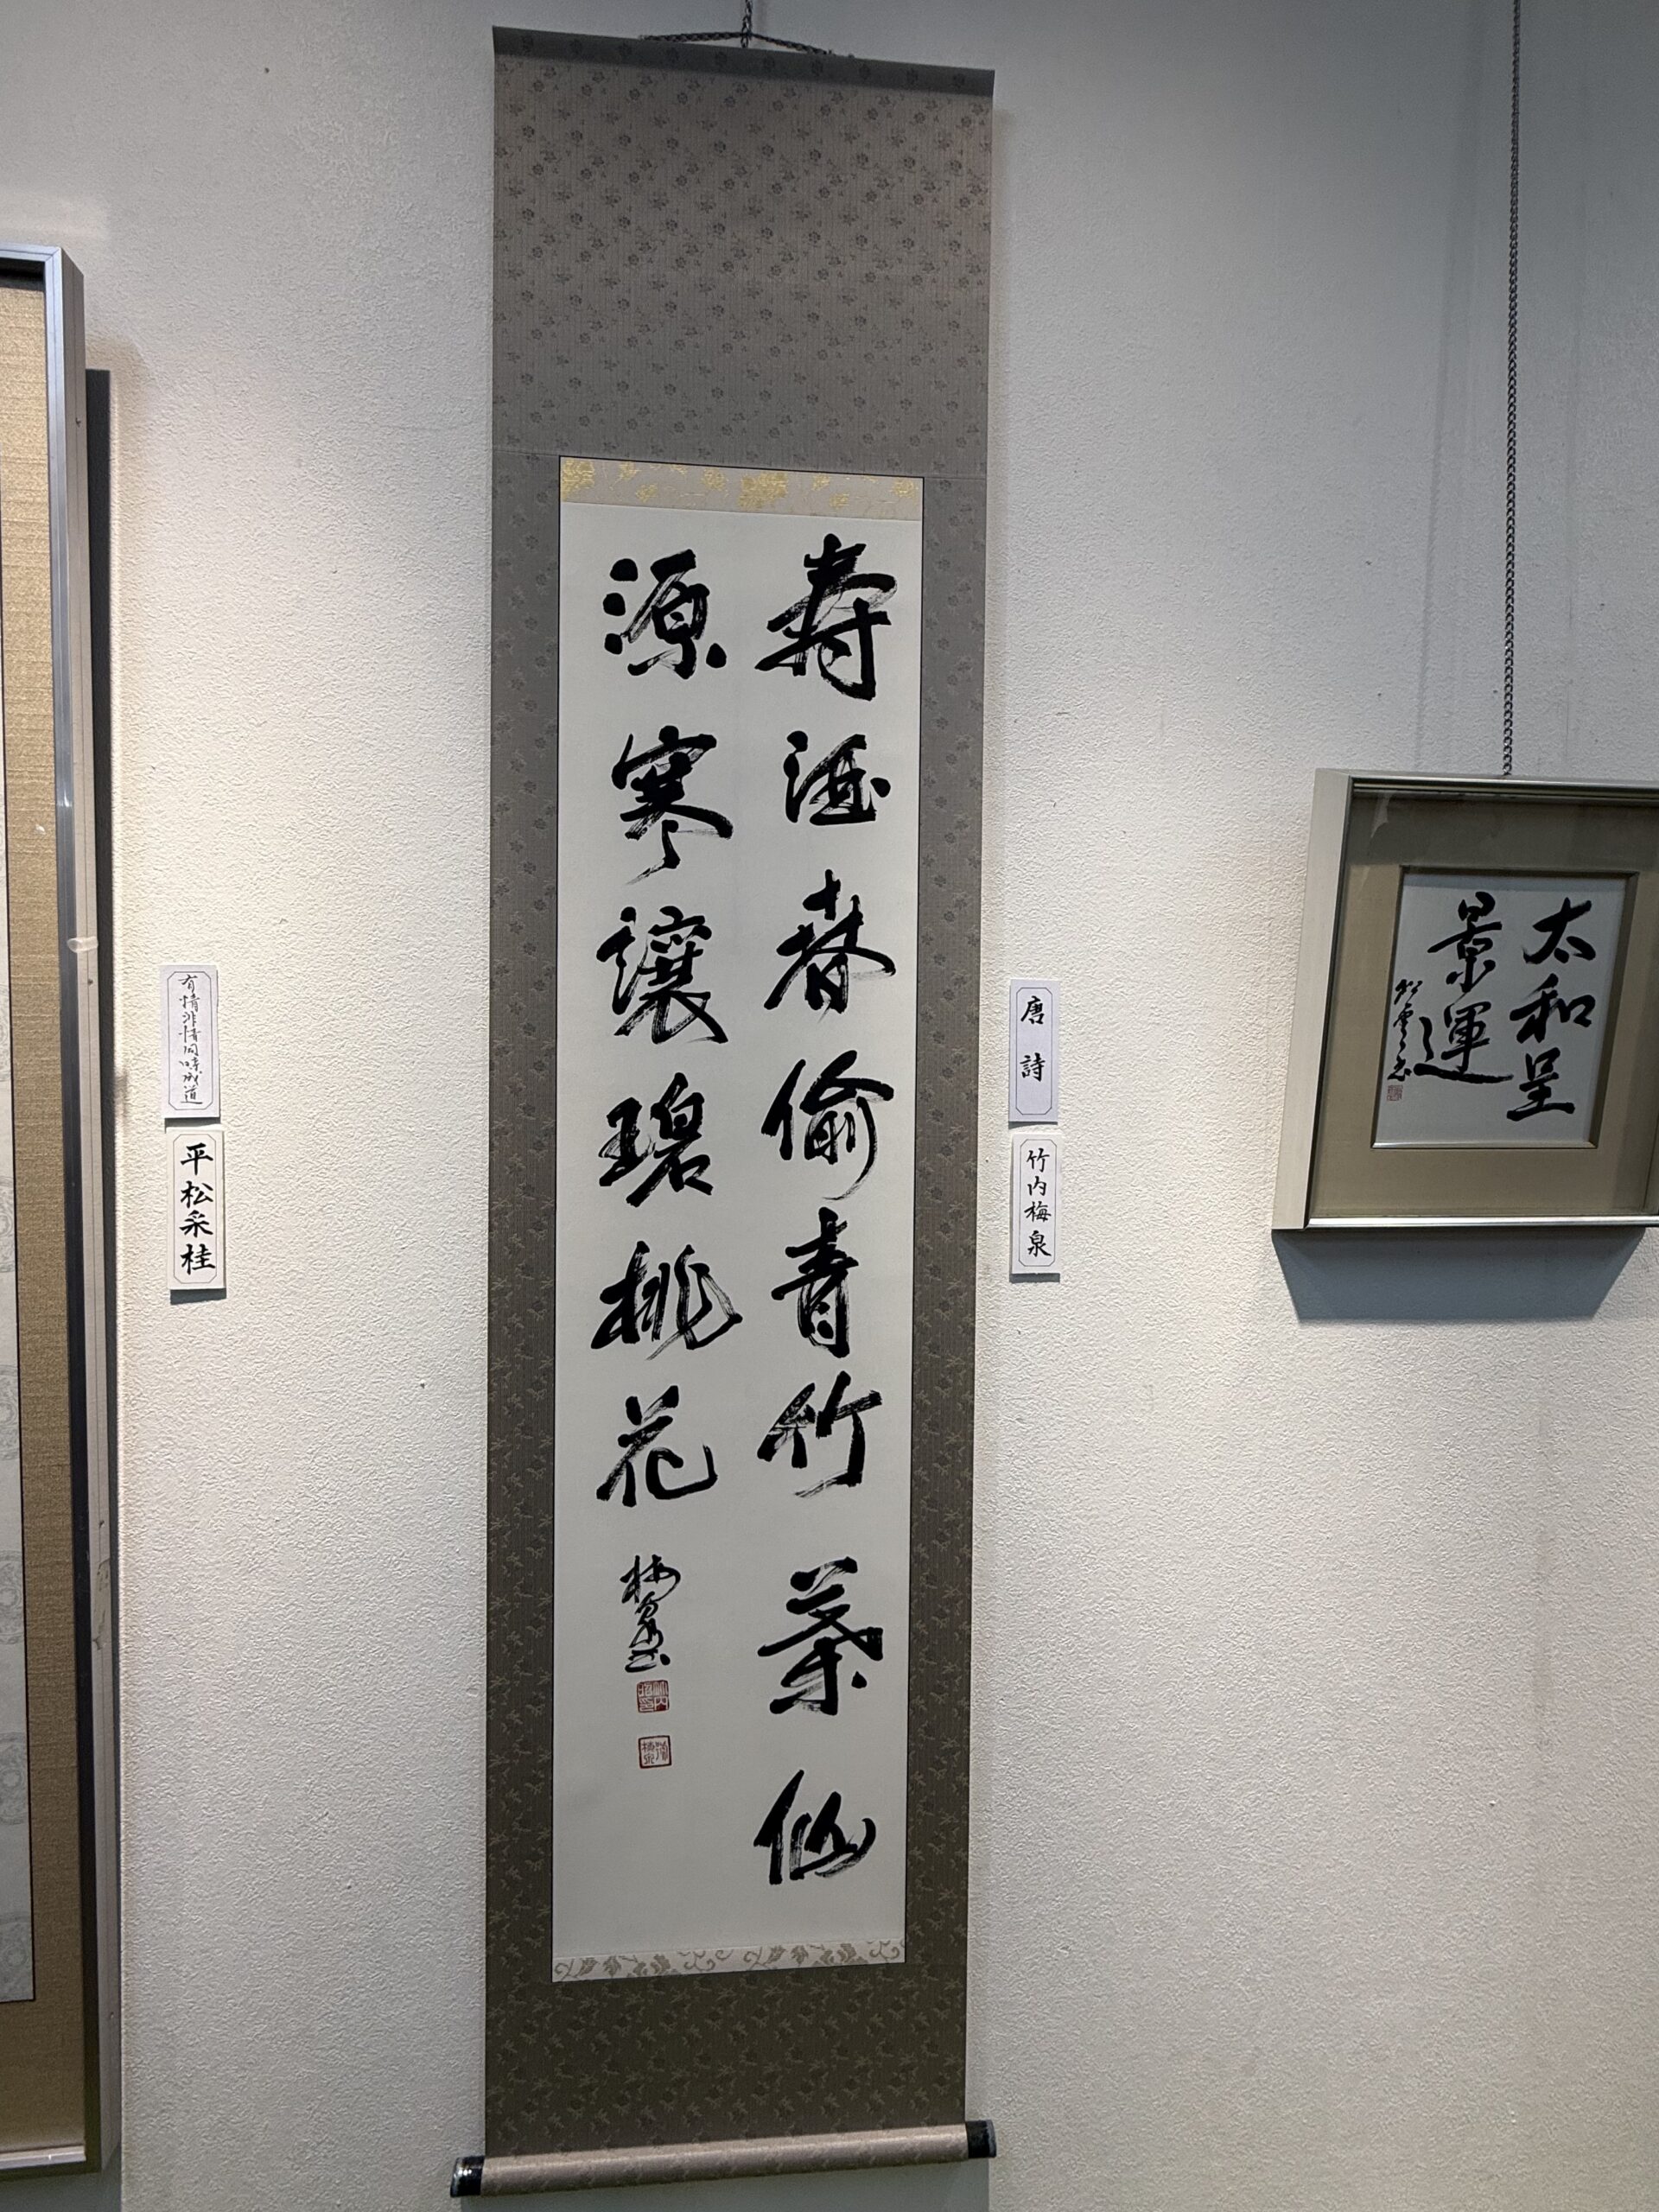 太和呈
景運
唐詩
竹内梅泉
寿酒春偷青竹葉仙
源寒讓碧桃花
梅泉書
有情非情同時成道
平松采桂